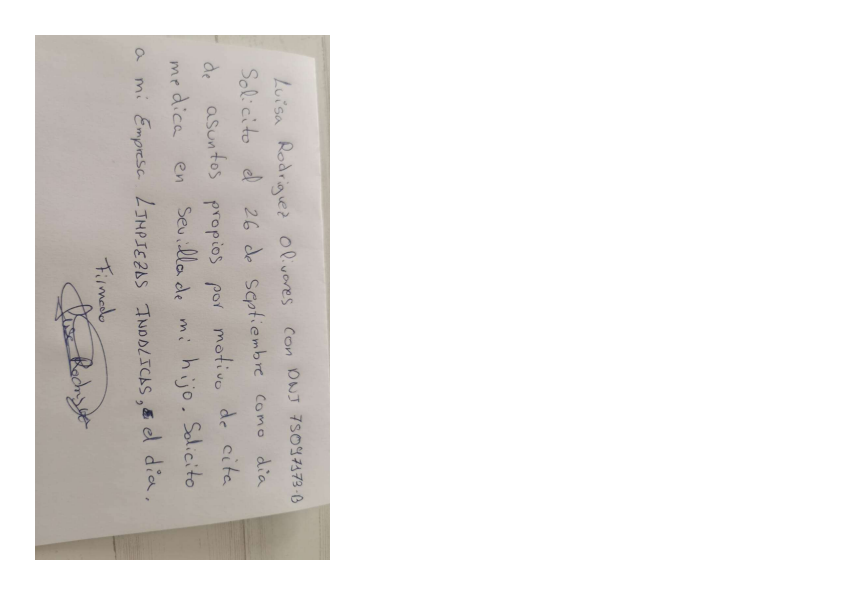 Luisa Rodriguez Olivares con DNI 75097173-B
Solicito el 26 de Septiembre como dia
de asuntos propios por motivo de cita
medica en Sevilla de mi hijo. Solicito
a mi Empresa LIMPIEZAS INDALICAS, el dia.
Firmado
Luisa Rodriguez